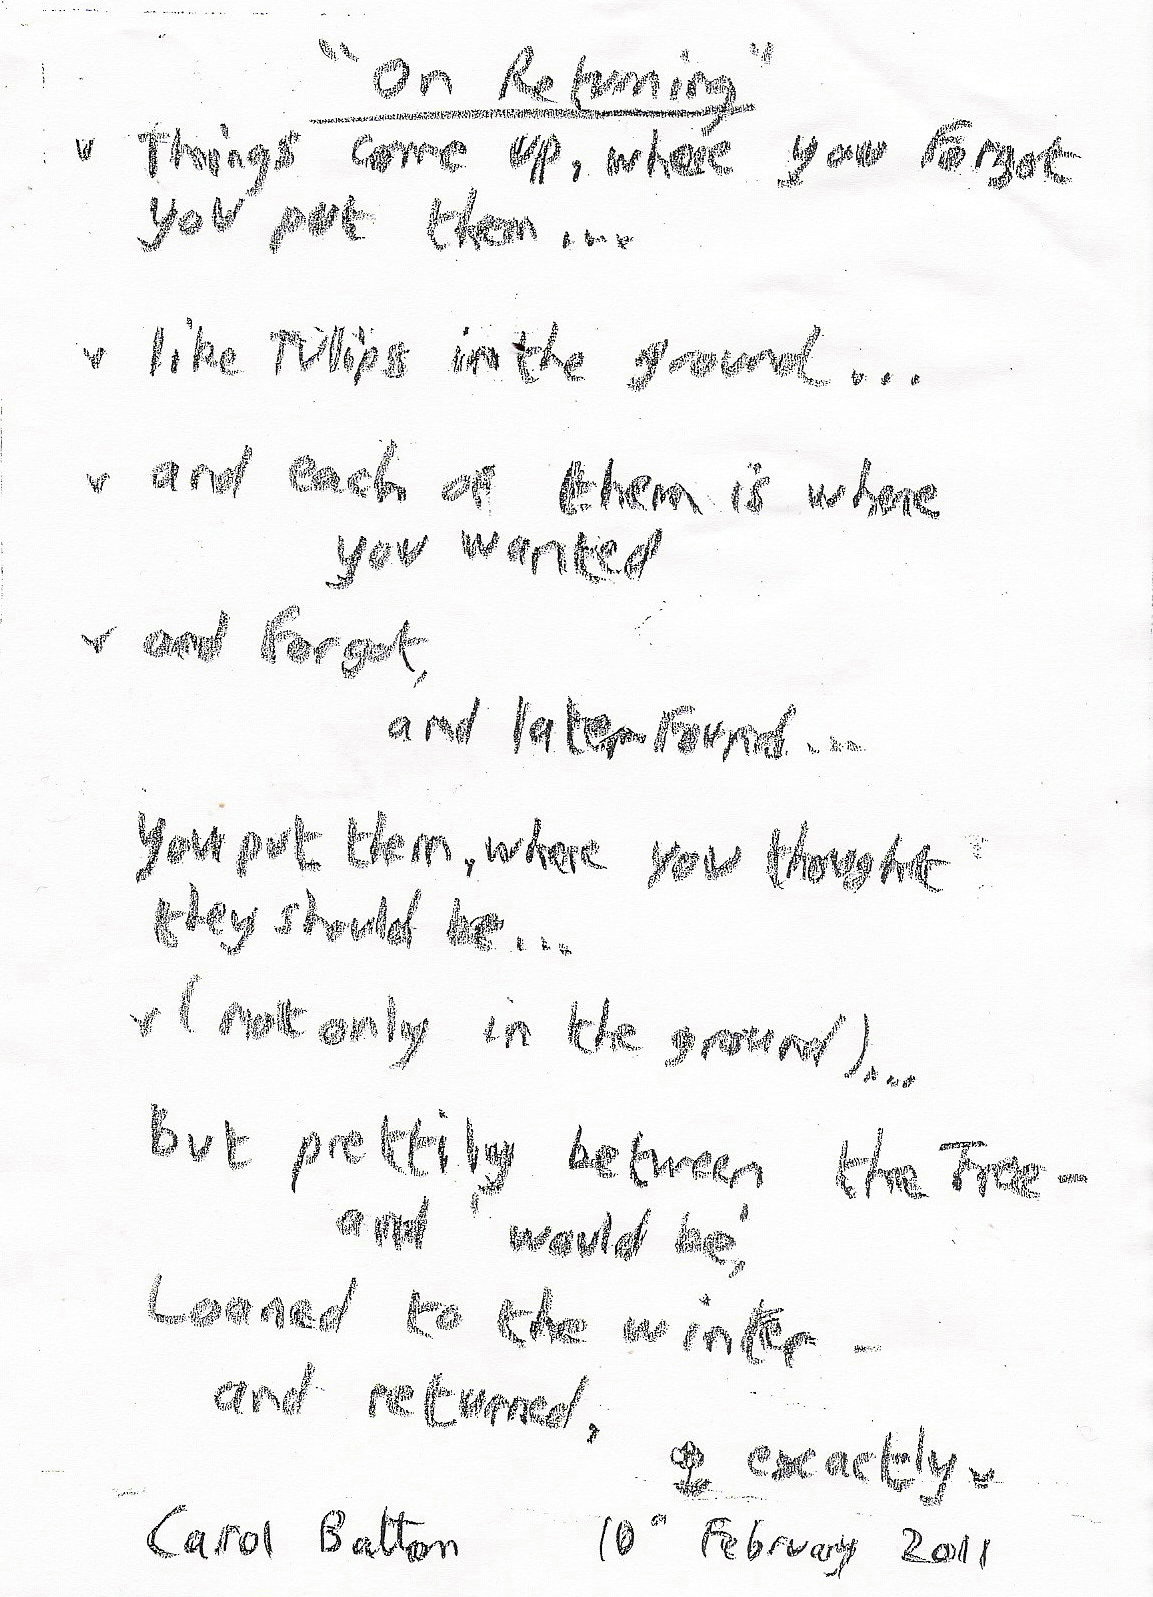 "On Returning"
v Things come up, where you forgot
you put them....
v like Tulips in the ground...
v and each of them is where
you wanted
v and forgot,
and later found....
you put them, where you thought
they should be...
v (not only in the ground)...
But prettily between the Tree-
and 'would be',
Loaned to the winter -
and returned,
exactly v
Carol Batton 10° February 2011